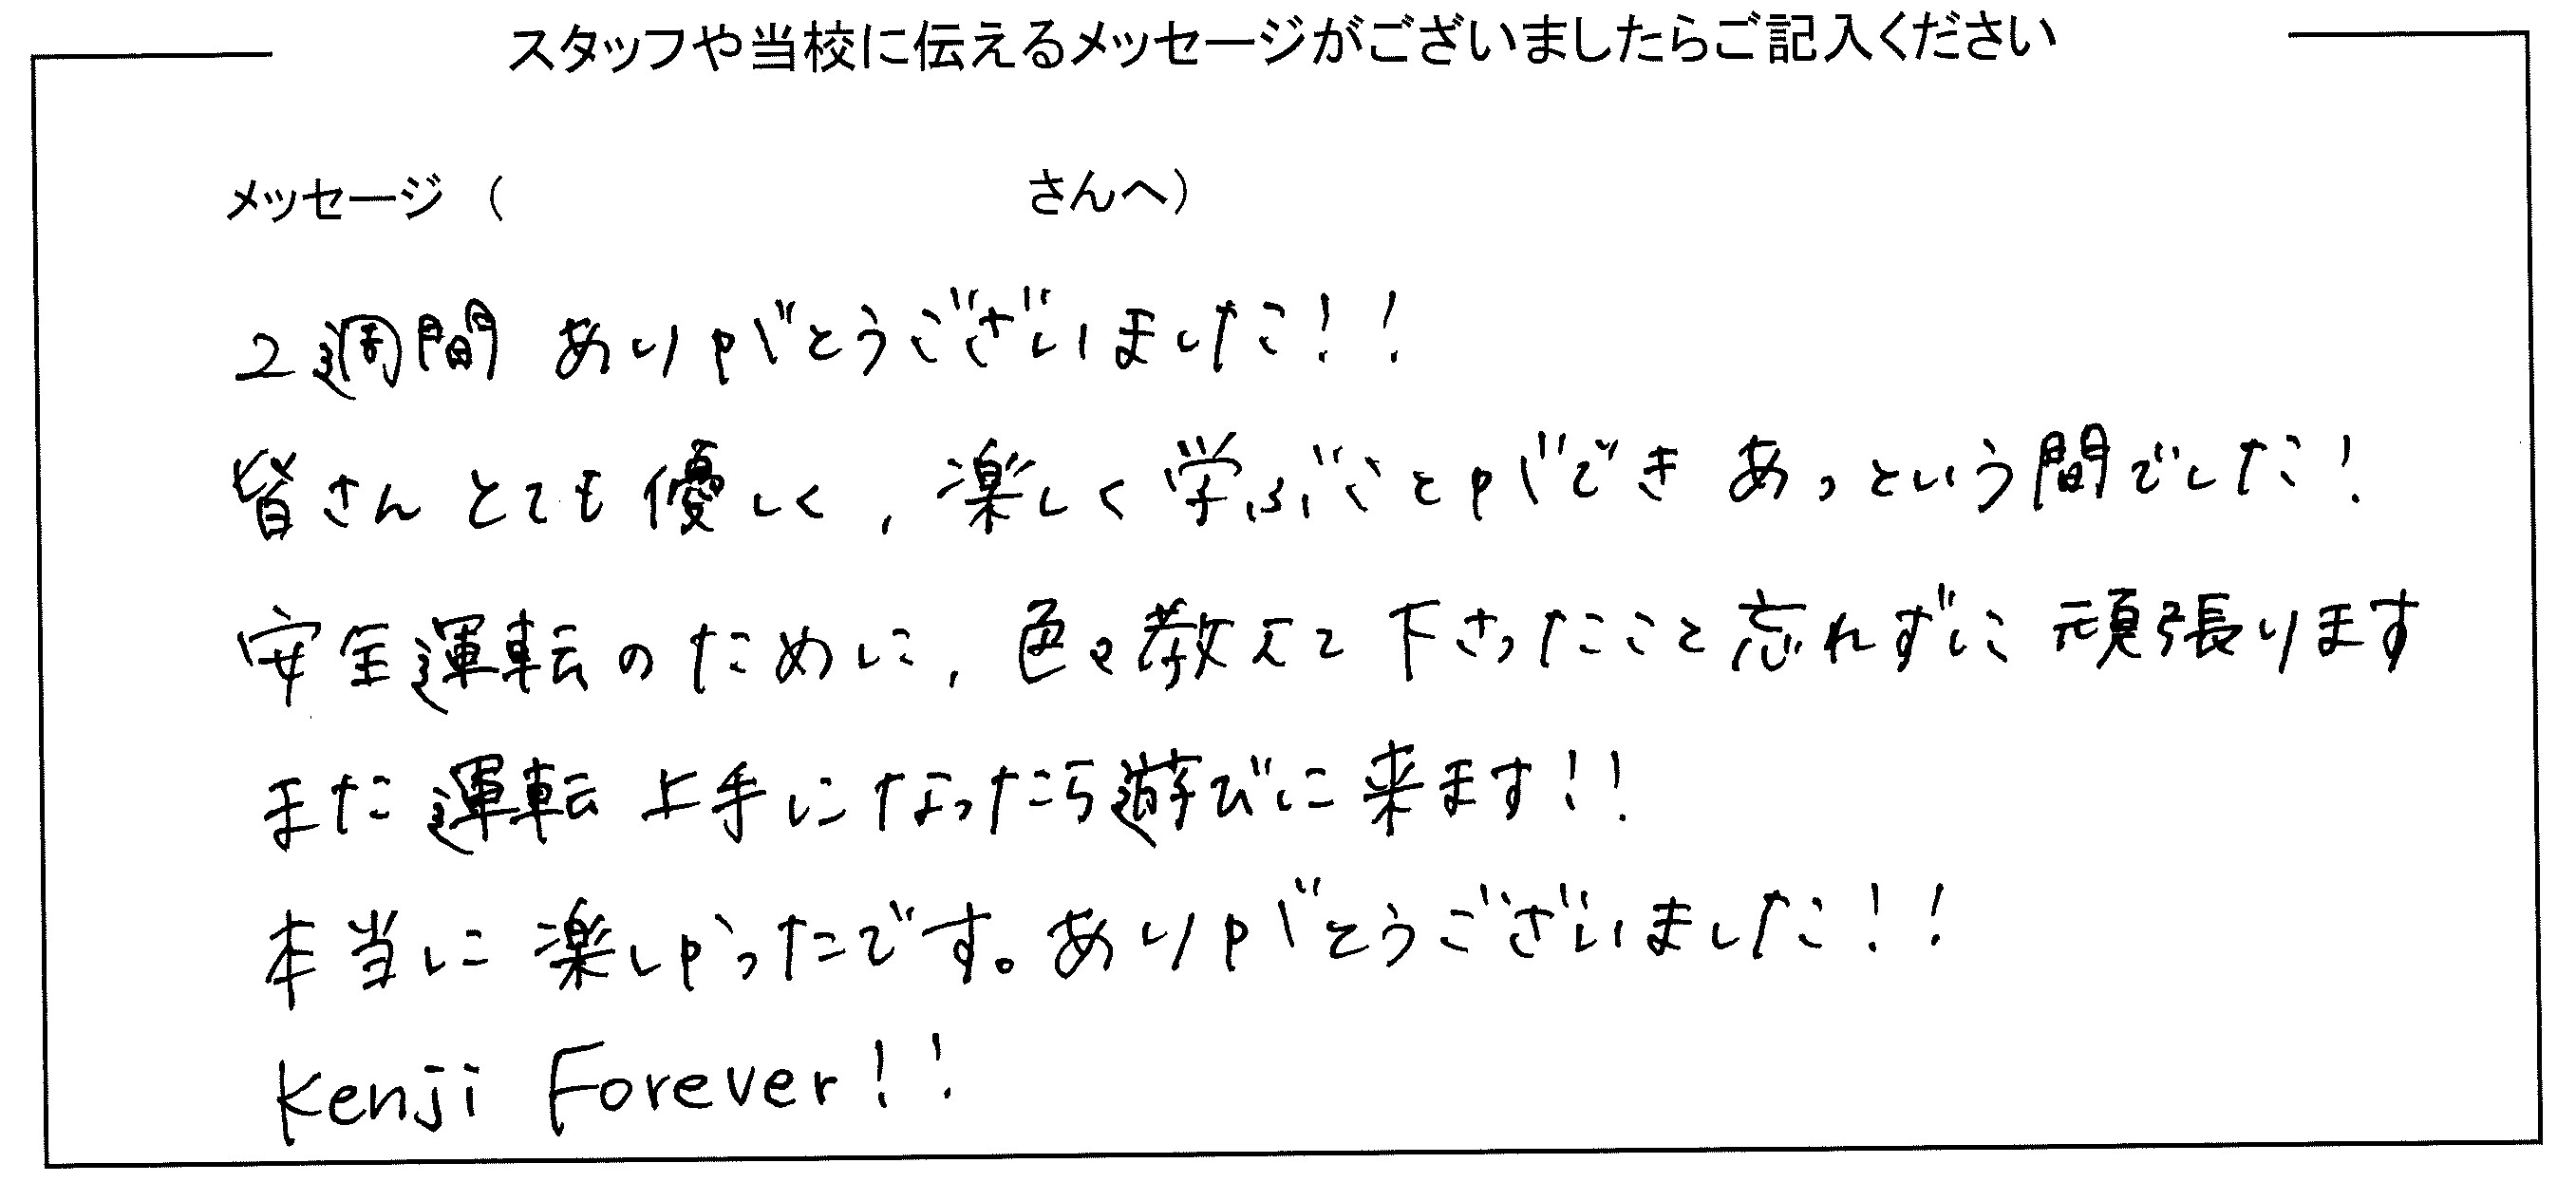 スタッフや当校に伝えるメッセージがございましたらご記入ください
メッセージ（　　　　　　　　　　さんへ）
2週間 ありがとうございました！！
皆さん とても優しく，楽しく学ぶことができ あっという間でした！
安全運転のために，色々教えて下さったこと忘れずに 頑張ります
また運転上手になったら遊びに来ます！！
本当に楽しかったです。ありがとうございました！！
Kenji Forever！！